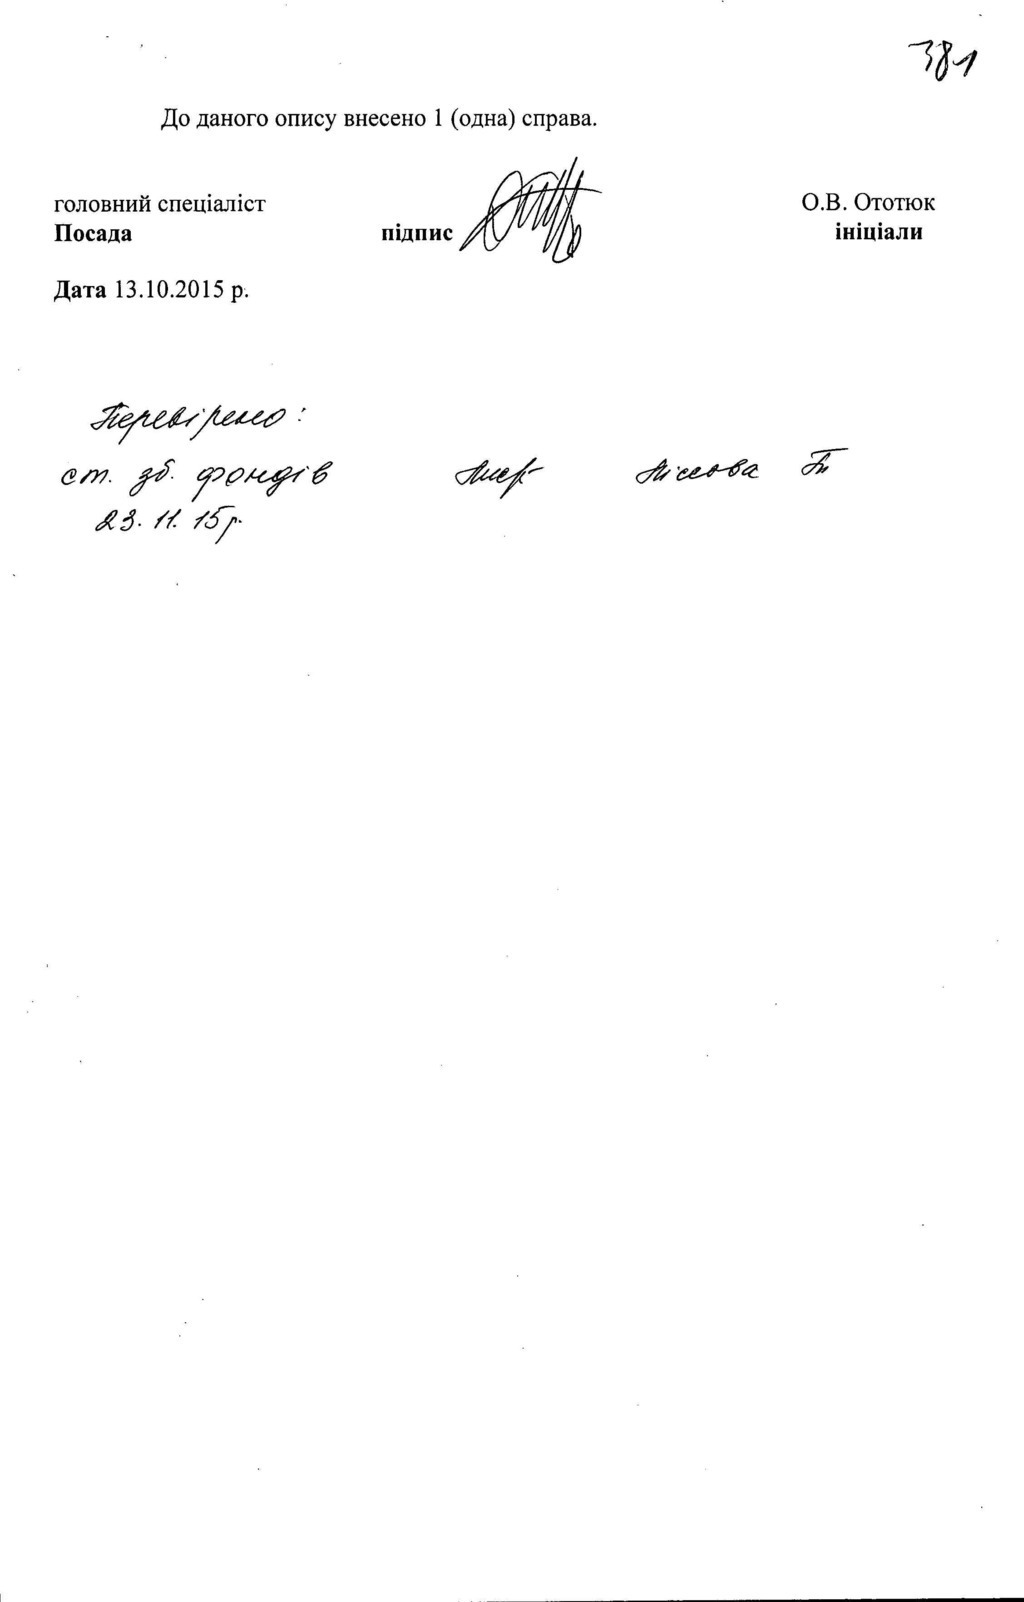 381
До даного опису внесено 1 (одна) справа.
головний спеціаліст О.В. Ототюк
Посада підпис ініціали
Дата 13.10.2015 р.
Перевірено:
ст. зб. фондів
23. 11. 15р.